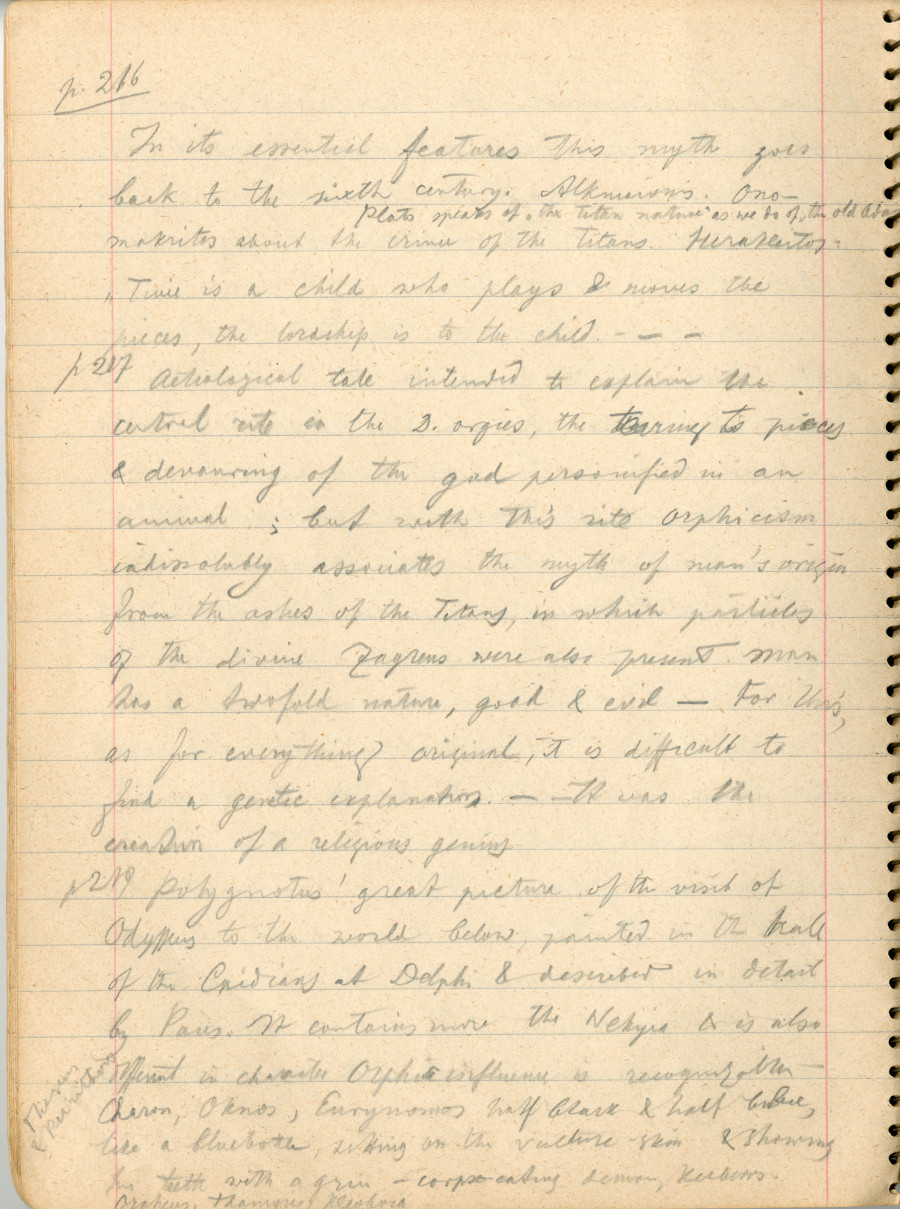 p. 216
In its essential features this myth goes
back to the sixth century. Alkmaionis. Ono-
Plato speaks of "the Titan nature" as we do of "the old Ada
makritos about the crime of the Titans. Herakleitos:
"Time is a child who plays & moves the
pieces, the lordship is to the child. - — -
p 217 Aetiological tale intended to explain the
central rite in the D. orgies, the tearing to pieces
& devouring of the god personified in an
animal ; but with this rite Orphicism
indissolubly associates the myth of man's origin
from the ashes of the Titans, in which particles
of the divine Zagreus were also present. Man
has a twofold nature, good & evil — For this,
as for everything original, it is difficult to
find a genetic explanation. — — It was the
creation of a religious genius
p 218 Polygnotus' great picture of the visit of
Odysseus to the world below, painted in the hall
of the Cnidians at Delphi & described in detail
by Paus. It contains more the Nekyia & is also
different in character Orphic influence is
Charon, Oknos, Eurynomos half black & half blue,
like a bluebottle, sitting on the vulture skin & showing
his teeth with a grin - corpse-eating demon, Kerberos.
Orpheus, Thamyris,
Theseus
& Peirithoos